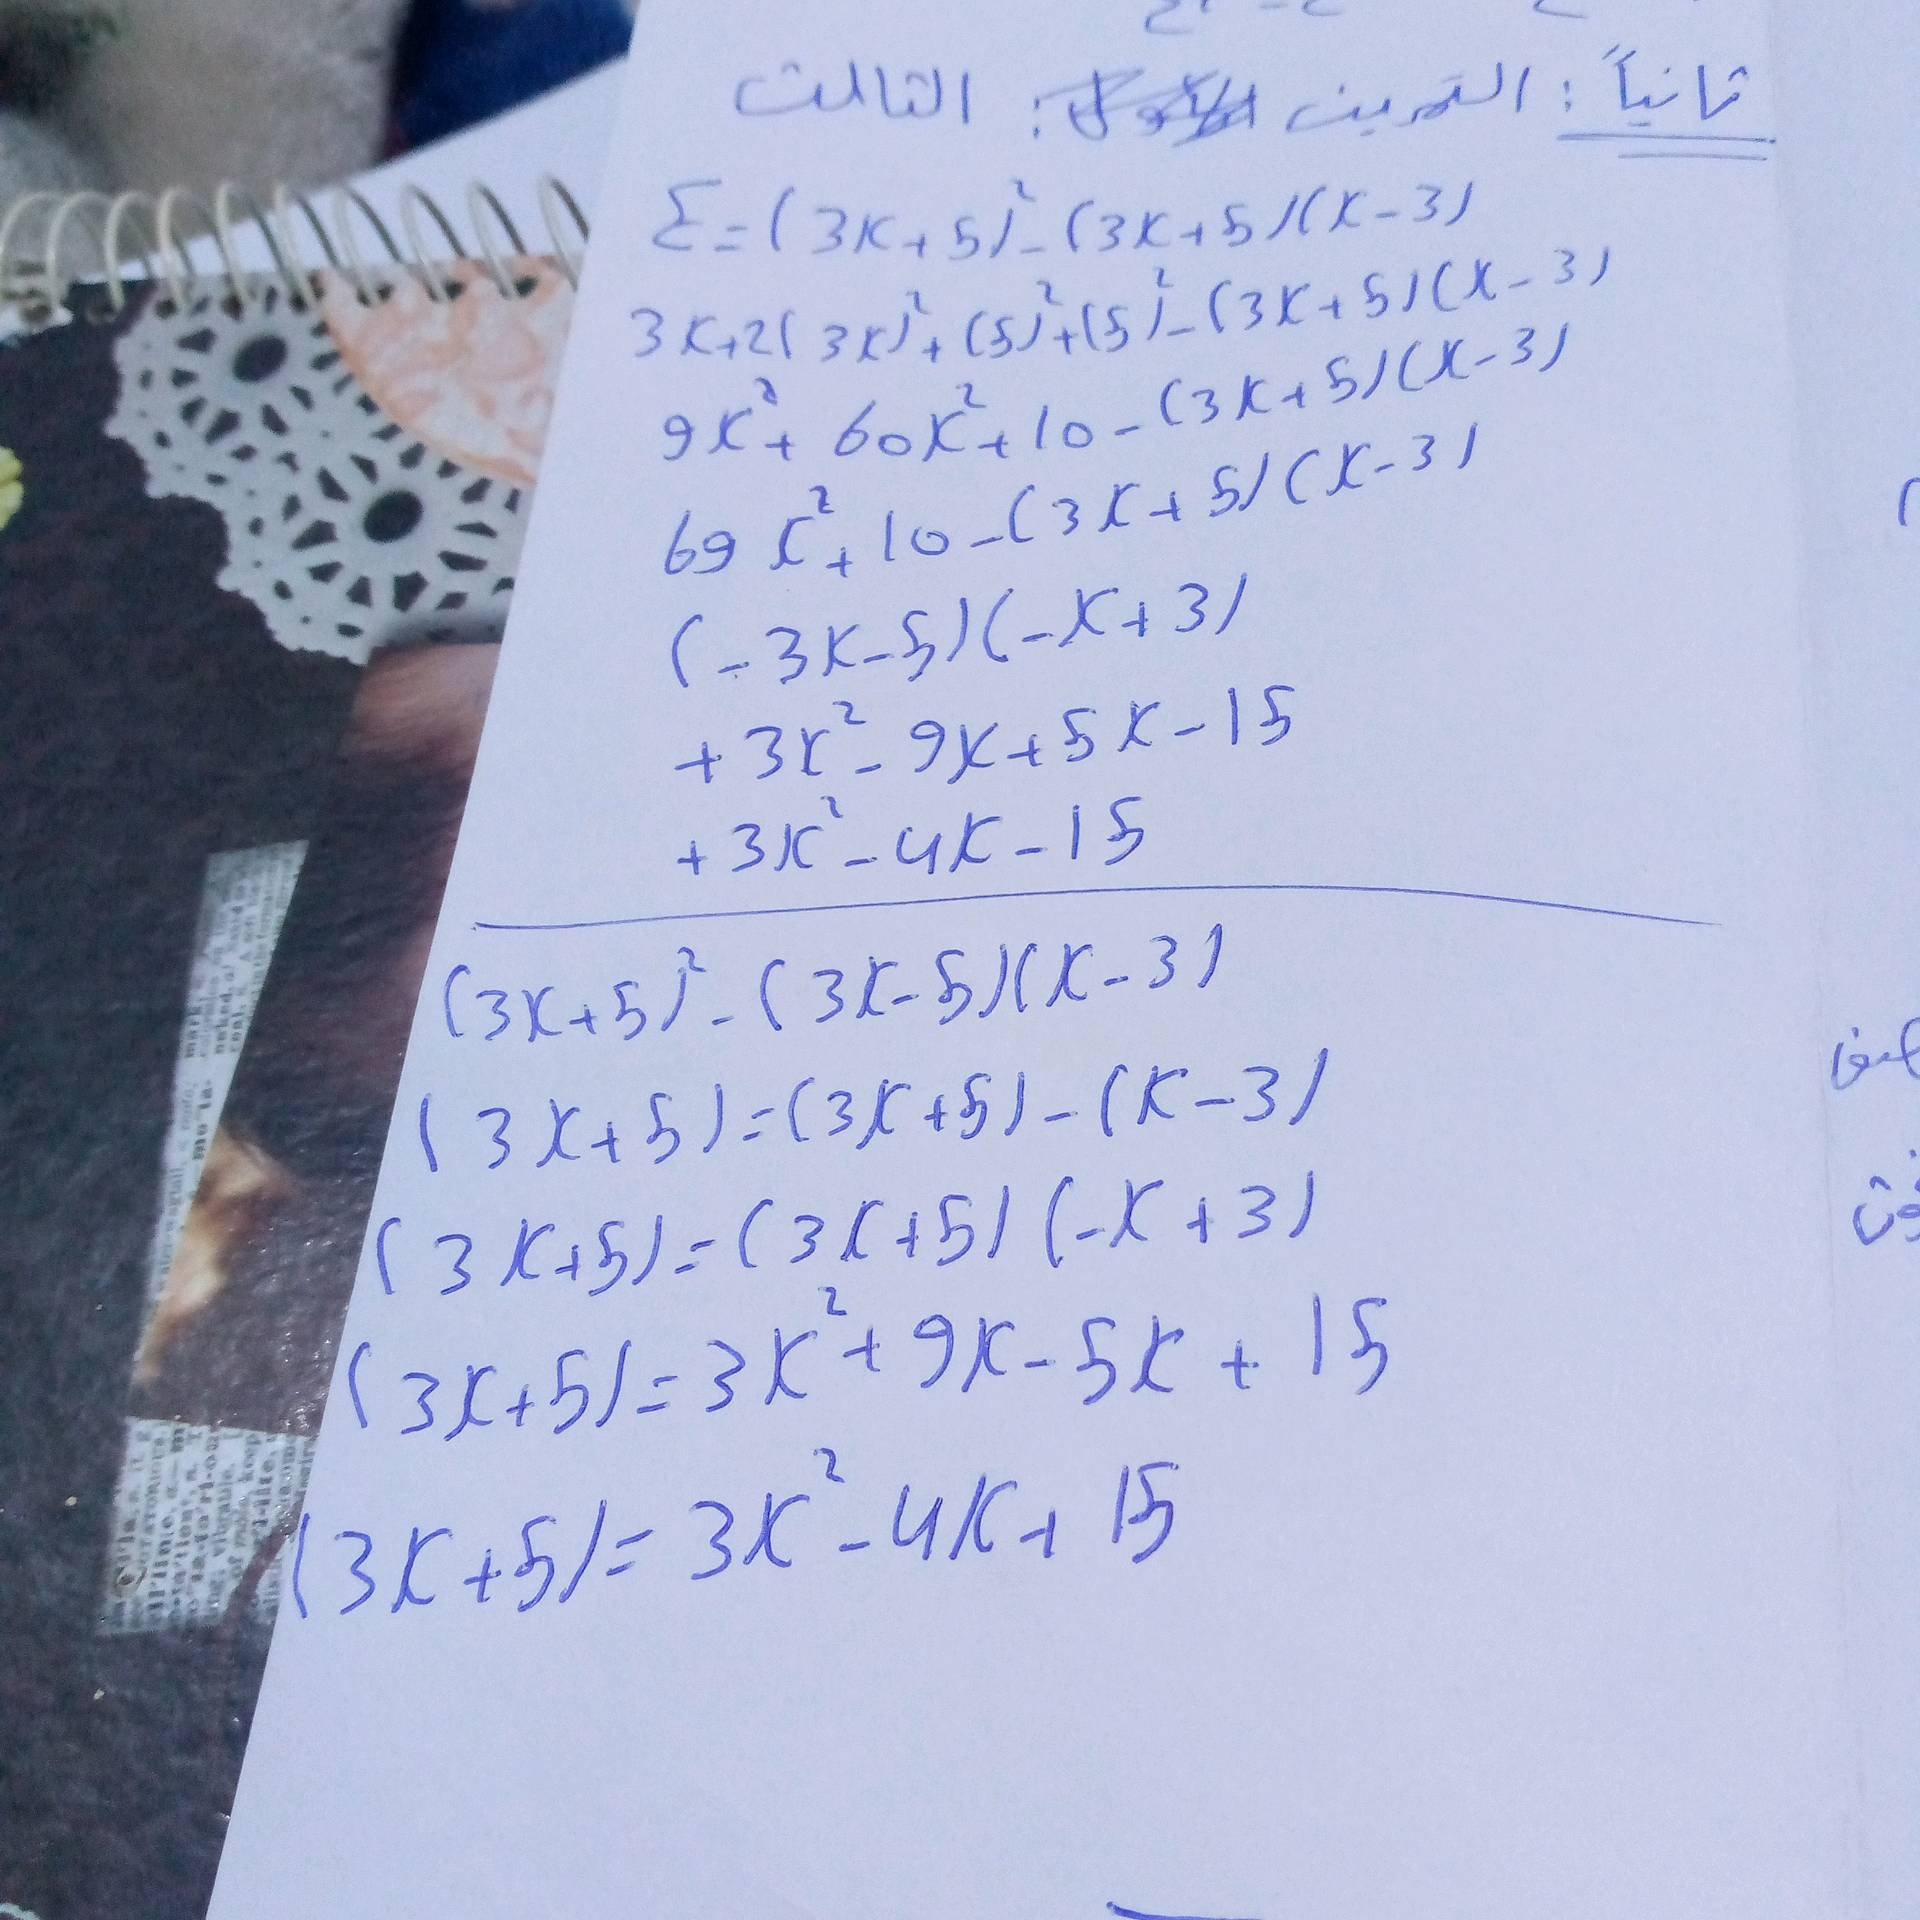 ثانياً : التمرين : الثالث
Σ = (3x+5)² - (3x+5)(x-3)
3x+2(3x)²+(5)²+(5)²-(3x+5)(x-3)
9x²+60x²+10-(3x+5)(x-3)
69x²+10-(3x+5)(x-3)
(-3x-5)(-x+3)
+3x²-9x+5x-15
+3x²-4x-15
(3x+5)²-(3x-5)(x-3)
(3x+5)=(3x+5)-(x-3)
(3x+5)=(3x+5)(-x+3)
(3x+5)=3x²+9x-5x+15
(3x+5)=3x²-4x+15